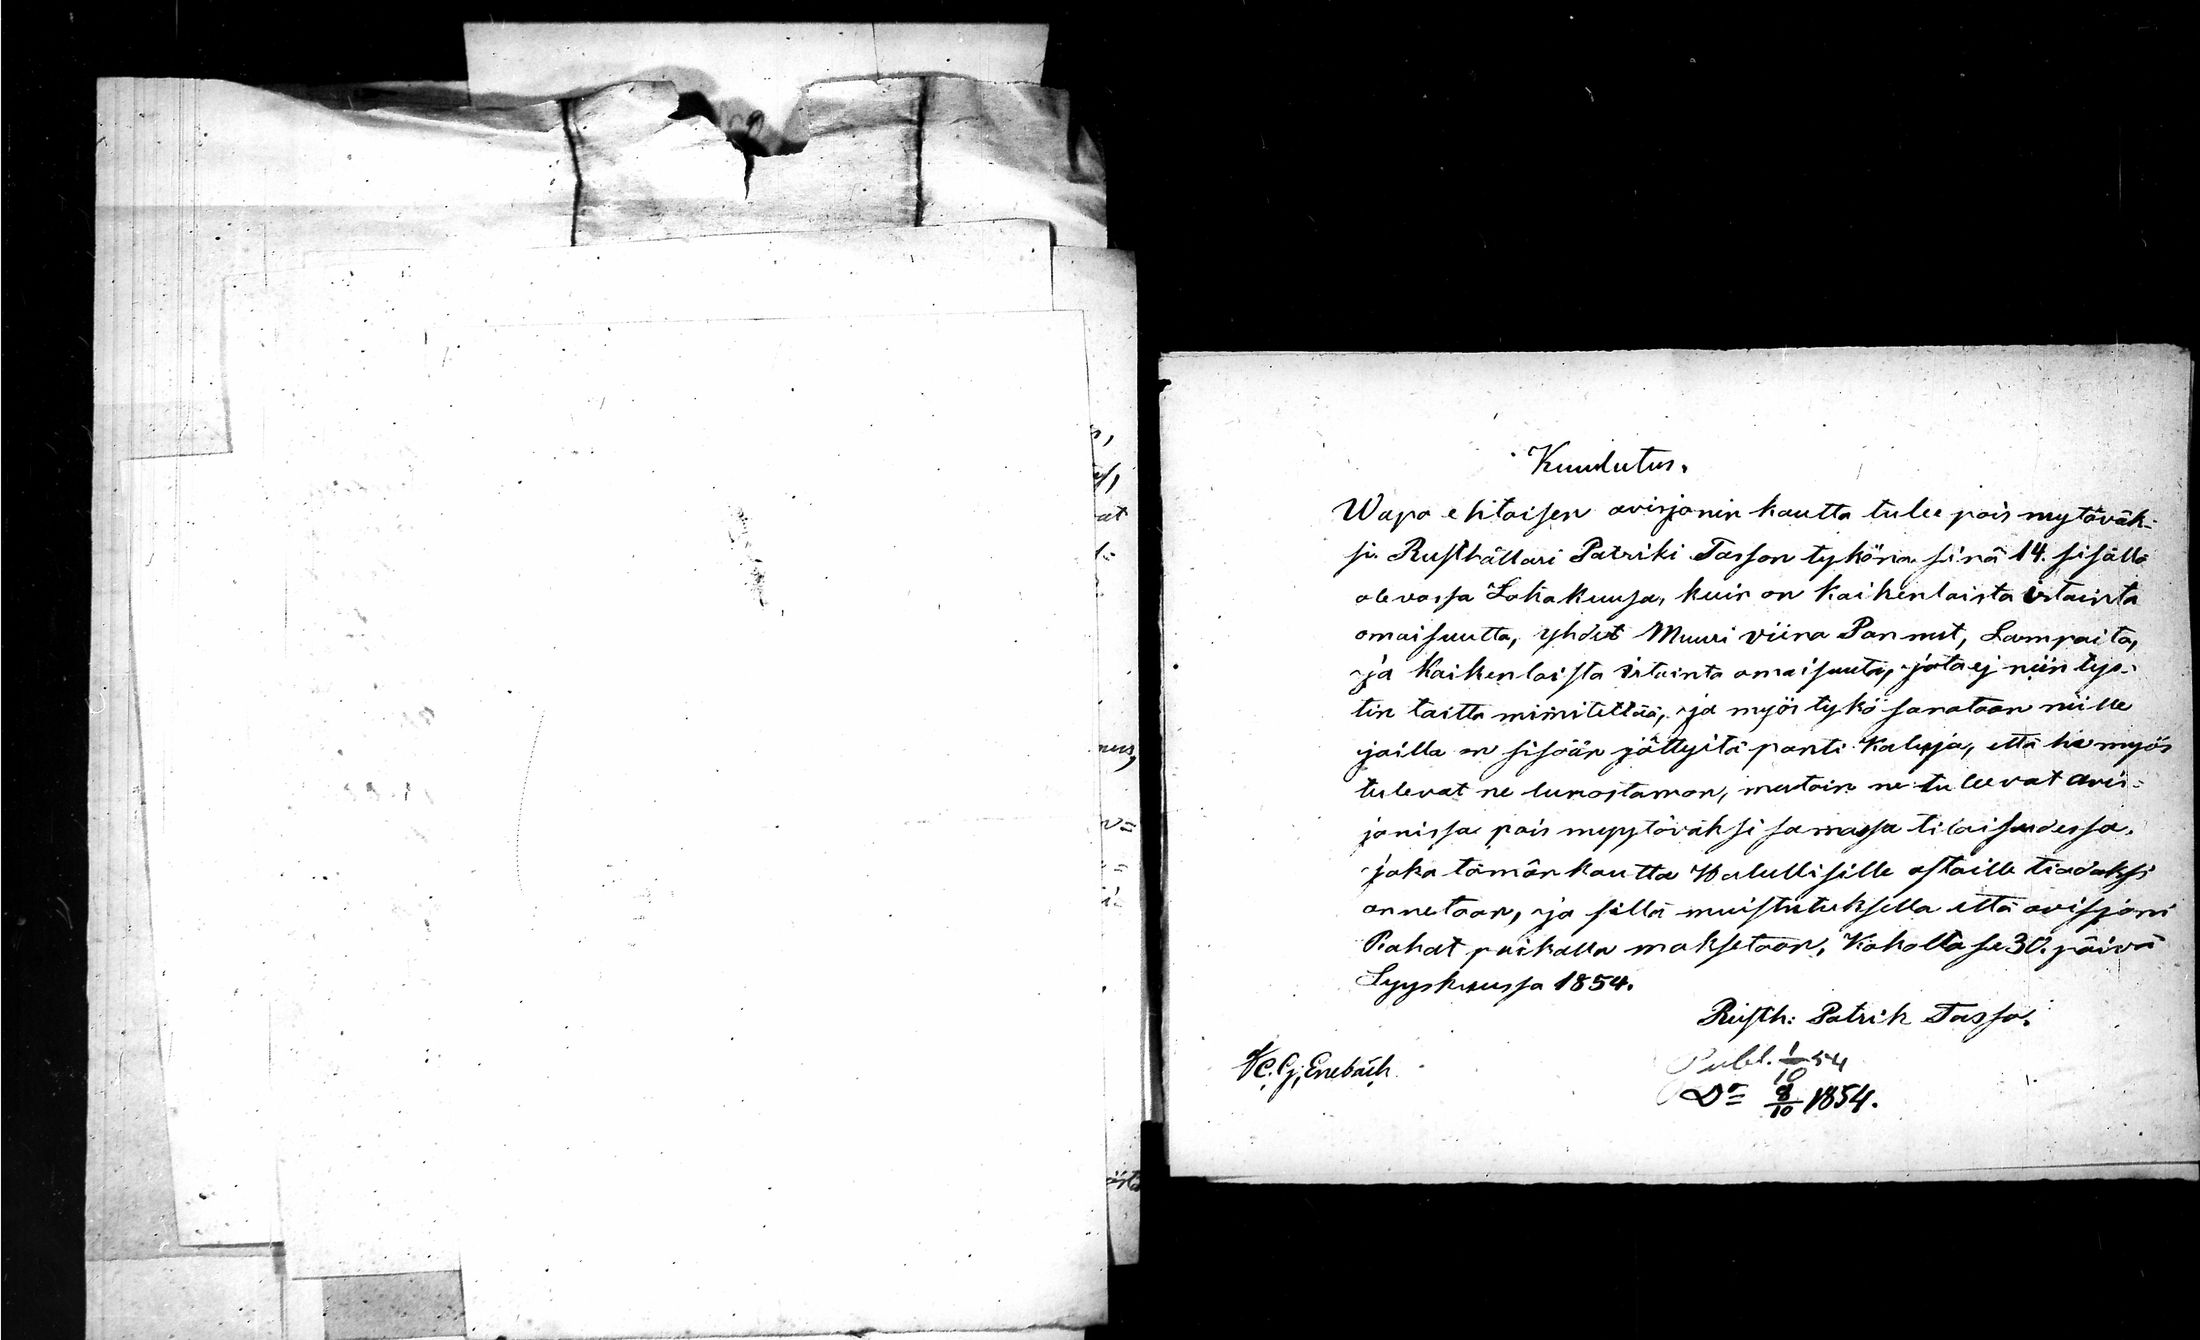 Kuulutus.
Wapa ehtoisen avisjonin kautta tulee pois mytäväk-
si Rusthållari Patriki Tasson tykönä sinä 14. sisällä
olevassa Lokakuusa, kuin on kaikenlaista irtainta
omaisuutta, yhdet Muuri viina Pannut, Lampaita,
ja kaikenlaista irtainta omaisuuta, jota ej niin tys-
tin taitta mimitellää, ja myös tykö sanataan niille
joilla on sisään jättyitä panti kaluja, että he myös
tulevat ne lunastaman, mutoin ne tulevat avis-
jonissa pois myytäväksi samassa tilaisuudessa.
joka tämän kautta Halullisille ostaille tiadoksi
annetaan, ja sillä muistutuksella että avisjoni
Rahat paikalla maksetaan, Kakolla se 30. päivä
Syyskuussa 1854.
Rusth: Patrik Tasso.
C. G. Enebäck
Publ. 1/10 54
Do= 8/10 1854.